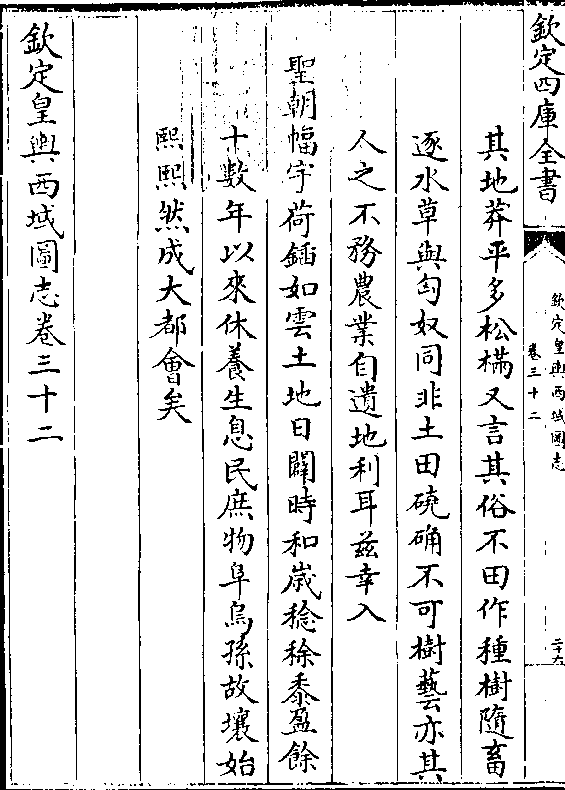 欽定四庫全書
欽定皇輿西域圖志
卷三十二
二十六
其地莽平多松樠又言其俗不田作種樹隨畜
逐水草與匈奴同非土田磽确不可樹藝亦其
人之不務農業自遺地利耳兹幸入
聖朝幅宇荷鍤如雲土地日闢時和嵗稔稌黍盈餘
十數年以來休養生息民庶物阜烏孫故壤始
熙熙然成大都會矣
欽定皇輿西域圖志卷三十二